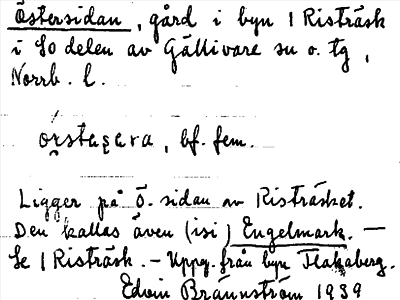 Östersidan, gård i byn 1 Risträsk
i SO delen av Gällivare sn o. tg,
Norrb. l.
, bf. fem.
Ligger på Ö. sidan av Risträsket.
Den kallas även (isi) Engelmark. —
Se 1 Risträsk. — Uppg. från byn Flakaberg.
Edvin Brännström 1939